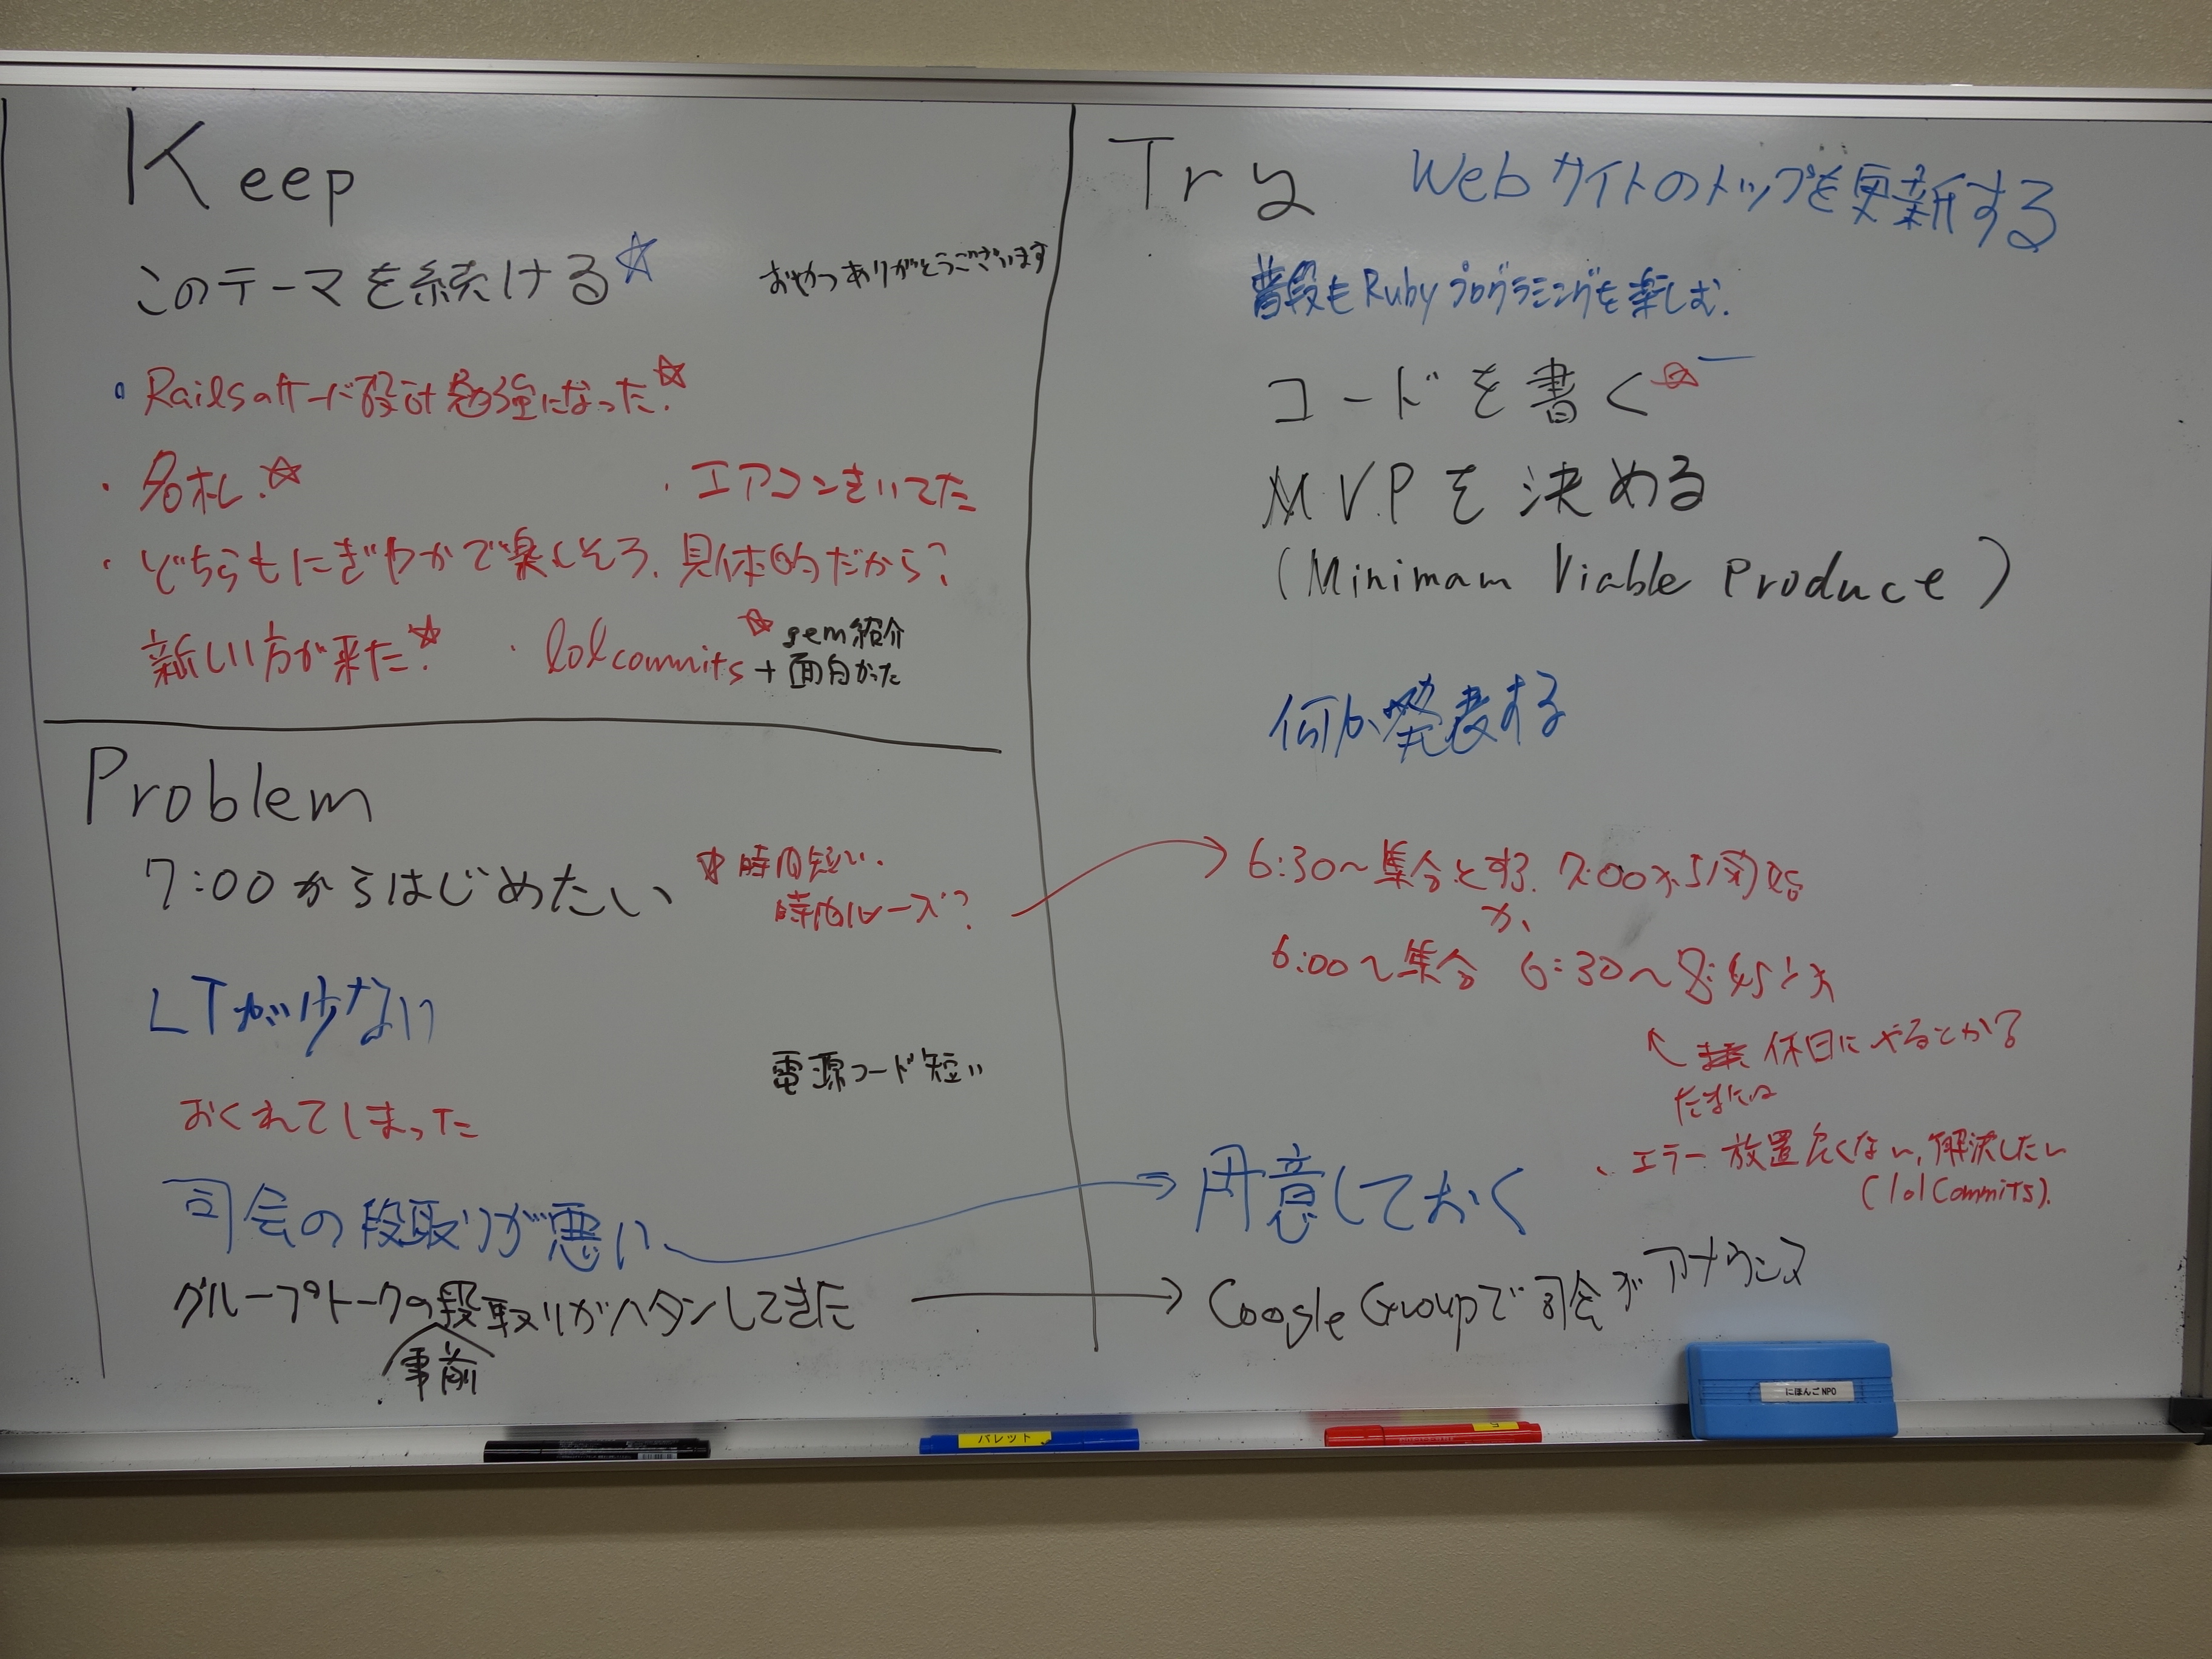 Keep
このテーマを続ける☆
おやつありがとうございます
Railsのコード設計勉強になった.☆
・名札.☆
・エアコンきいてた
・どちらもにぎやかで楽しそう、具体的だから?
新しい方が来た.☆
・lolcommits☆
+
gem紹介
面白かった
Problem
7:00からはじめたい
☆時間短い、
時間ルーズ?
LTが少ない
電源コード短い
おくれてしまった
司会の段取りが悪い
グループトークの段取りがハタンしてきた
事前
Try
Webサイトのトップを更新する
普段もRubyプログラミングを楽しむ.
コードを書く☆
MVPを決める
(Minimam Viable Produce)
何か発表する
→6:30〜集合とする、7:00から開始
か、
6:00〜集合 6:30〜8:45とか
休日にやるとか?
たまには
、エラー放置良くない、解決したい
(lolCommits).
→用意しておく
→Google Groupで司会がアナウンス
パレット
にほんごNPO